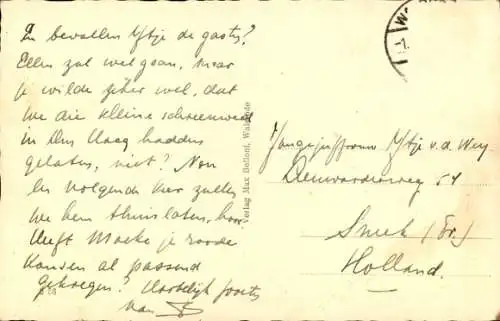 En bevallen Ytje de gasten?
Ellen zal wel gaan, maar
je wilde zeker wel, dat
we die kleine schreeuwerd
in Den Haag hadden
gelaten, niet? Nou
de volgende keer zullen
we hem thuislaten, hoor
Heeft Maeke je
konden al passend
gekregen? Hartelijk groeten
van
Verlag Max Bofford, Walsrode
Jongejuffrouw Ytje v.d. Wey
Leeuwarderweg 54
Sneek (Fr.)
Holland.